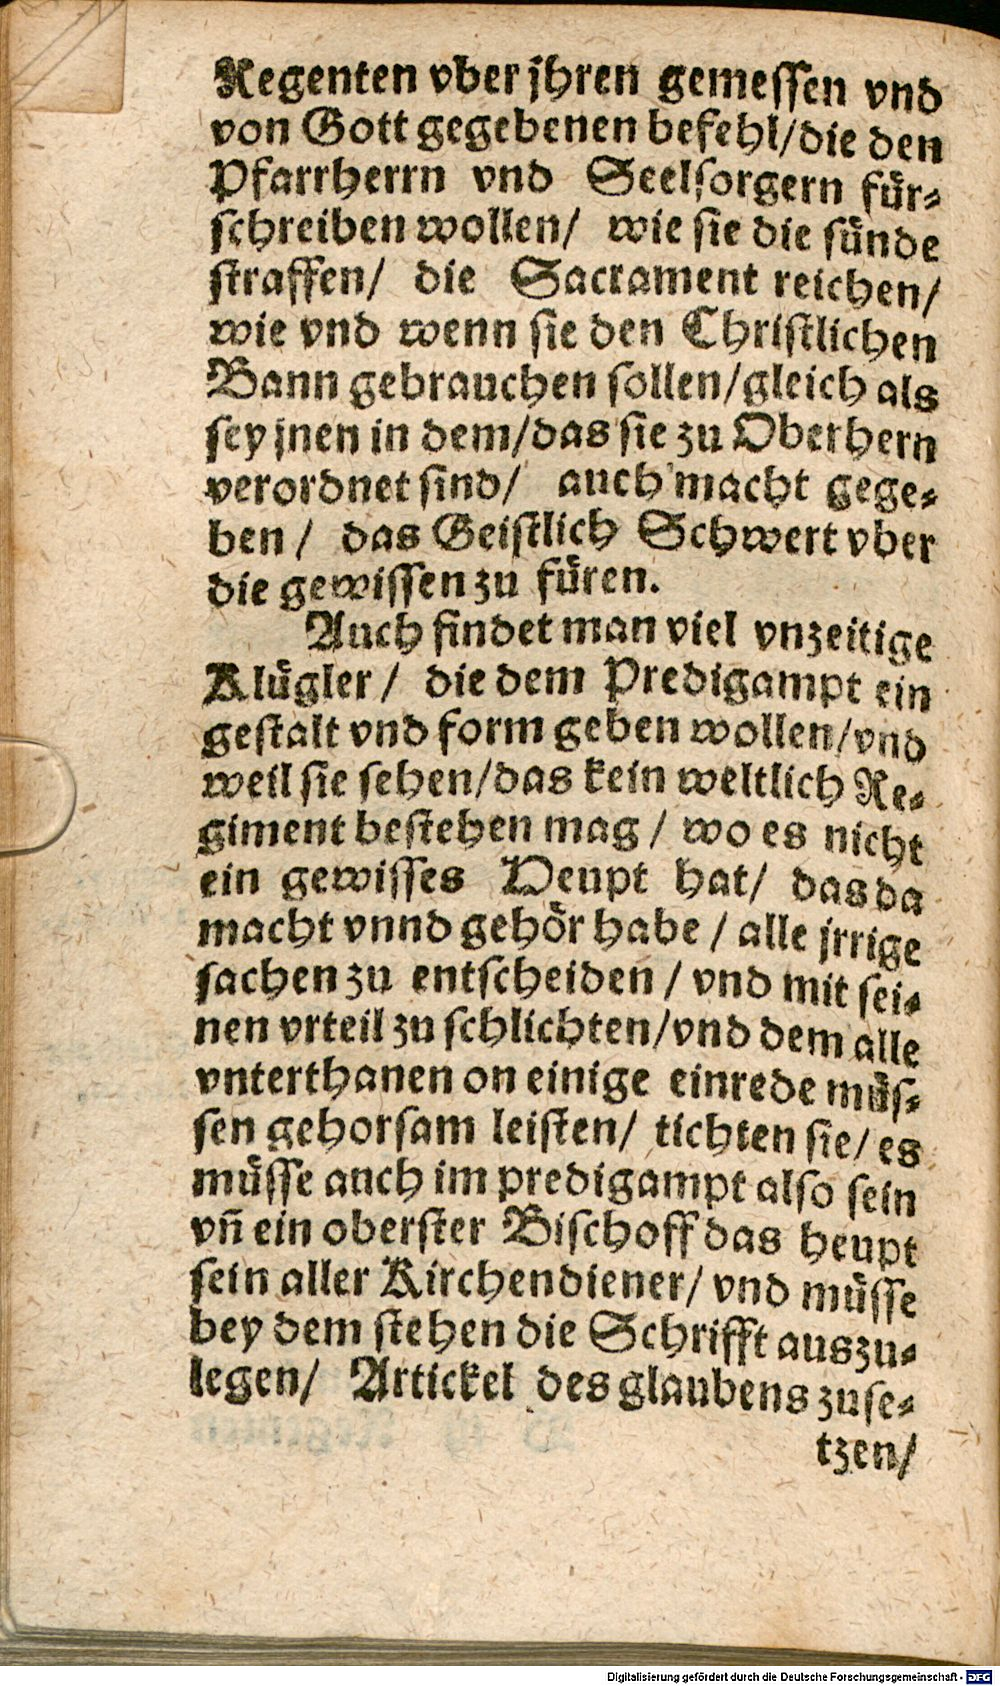 Regenten vber jhren gemessen vnd
von Gott gegebenen befehl/die den
Pfarrherrn vnd Seelsorgern für-
schreiben wollen/ wie sie die sünde
straffen/ die Sacrament reichen/
wie vnd wenn sie den Christlichen
Bann gebrauchen sollen/gleich als
sey jnen in dem/das sie zu Oberhern
verordnet sind/ auch macht gege-
ben / das Geistlich Schwert vber
die gewissen zu füren.
Auch findet man viel vnzeitige
Klügler / die dem Predigampt ein
gestalt vnd form geben wollen/vnd
weil sie sehen/das kein weltlich Re-
giment bestehen mag / wo es nicht
ein gewisses Heupt hat/ das da
macht vnnd gehör habe / alle jrrige
sachen zu entscheiden / vnd mit sei-
nen vrteil zu schlichten/vnd dem alle
vnterthanen on einige einrede müs-
sen gehorsam leisten/ tichten sie/ es
müsse auch im predigampt also sein
vñ ein oberster Bischoff das heupt
sein aller Kirchendiener/ vnd müsse
bey dem stehen die Schrifft auszu-
legen/ Artickel des glaubens zuse-
tzen/
Digitalisierung gefördert durch die Deutsche Forschungsgemeinschaft - DFG